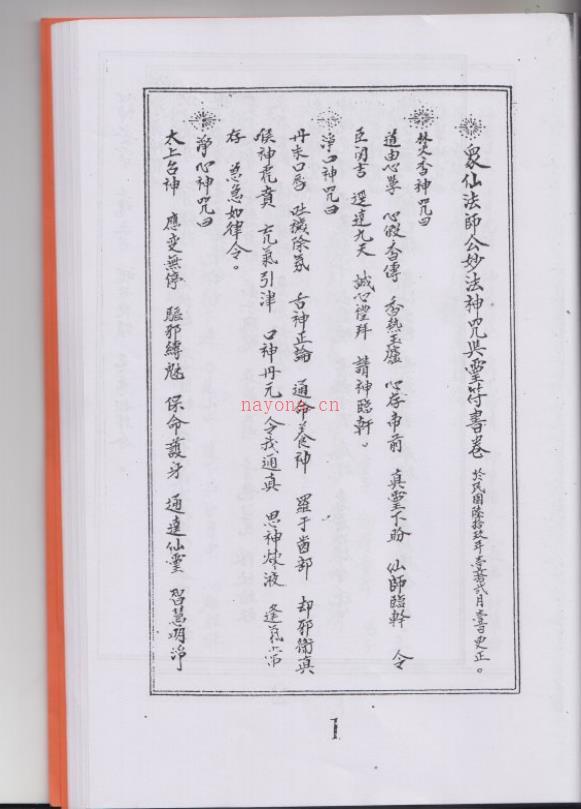 眾仙法師公妙法神咒與靈符書卷 於民國陸拾玖年壹拾貳月壹日更正。
焚香神咒曰
道由心學 心假香傳 香熱玉爐 心存帝前 真靈下盼 仙師臨幹 令
臣明吉 逕達九天 誠心禮拜 請神臨軒。
淨口神咒曰
丹朱口唇 吐穢除氛 舌神正論 通命養神 羅于齒部 却邪衛真
喉神虎賁 炁氣引津 口神丹元 令我通真 思神煉液 逢氣常
存 急急如律令。
淨心神咒曰
太上台神 應变無停 驅邪縛魅 保命護牙 通達仙靈 智慧明淨
nayona.cn
1